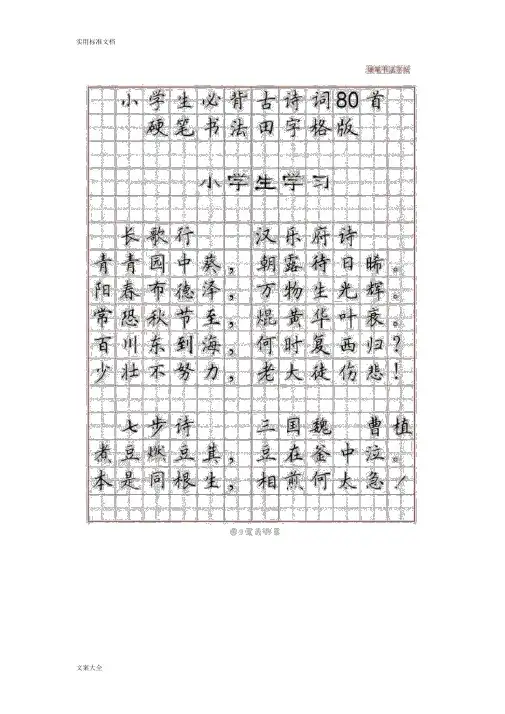 实用标准文档
小学生必背古诗词80首
硬笔书法田字格版
小学生学习
长歌行 汉乐府诗
青青园中葵，朝露待日晞。
阳春布德泽，万物生光辉。
常恐秋节至，焜黄华叶衰。
百川东到海，何时复西归？
少壮不努力，老大徒伤悲！
七步诗 三国魏 曹植
煮豆燃豆其，豆在釜中泣。
本是同根生，相煎何太急！
文案大全